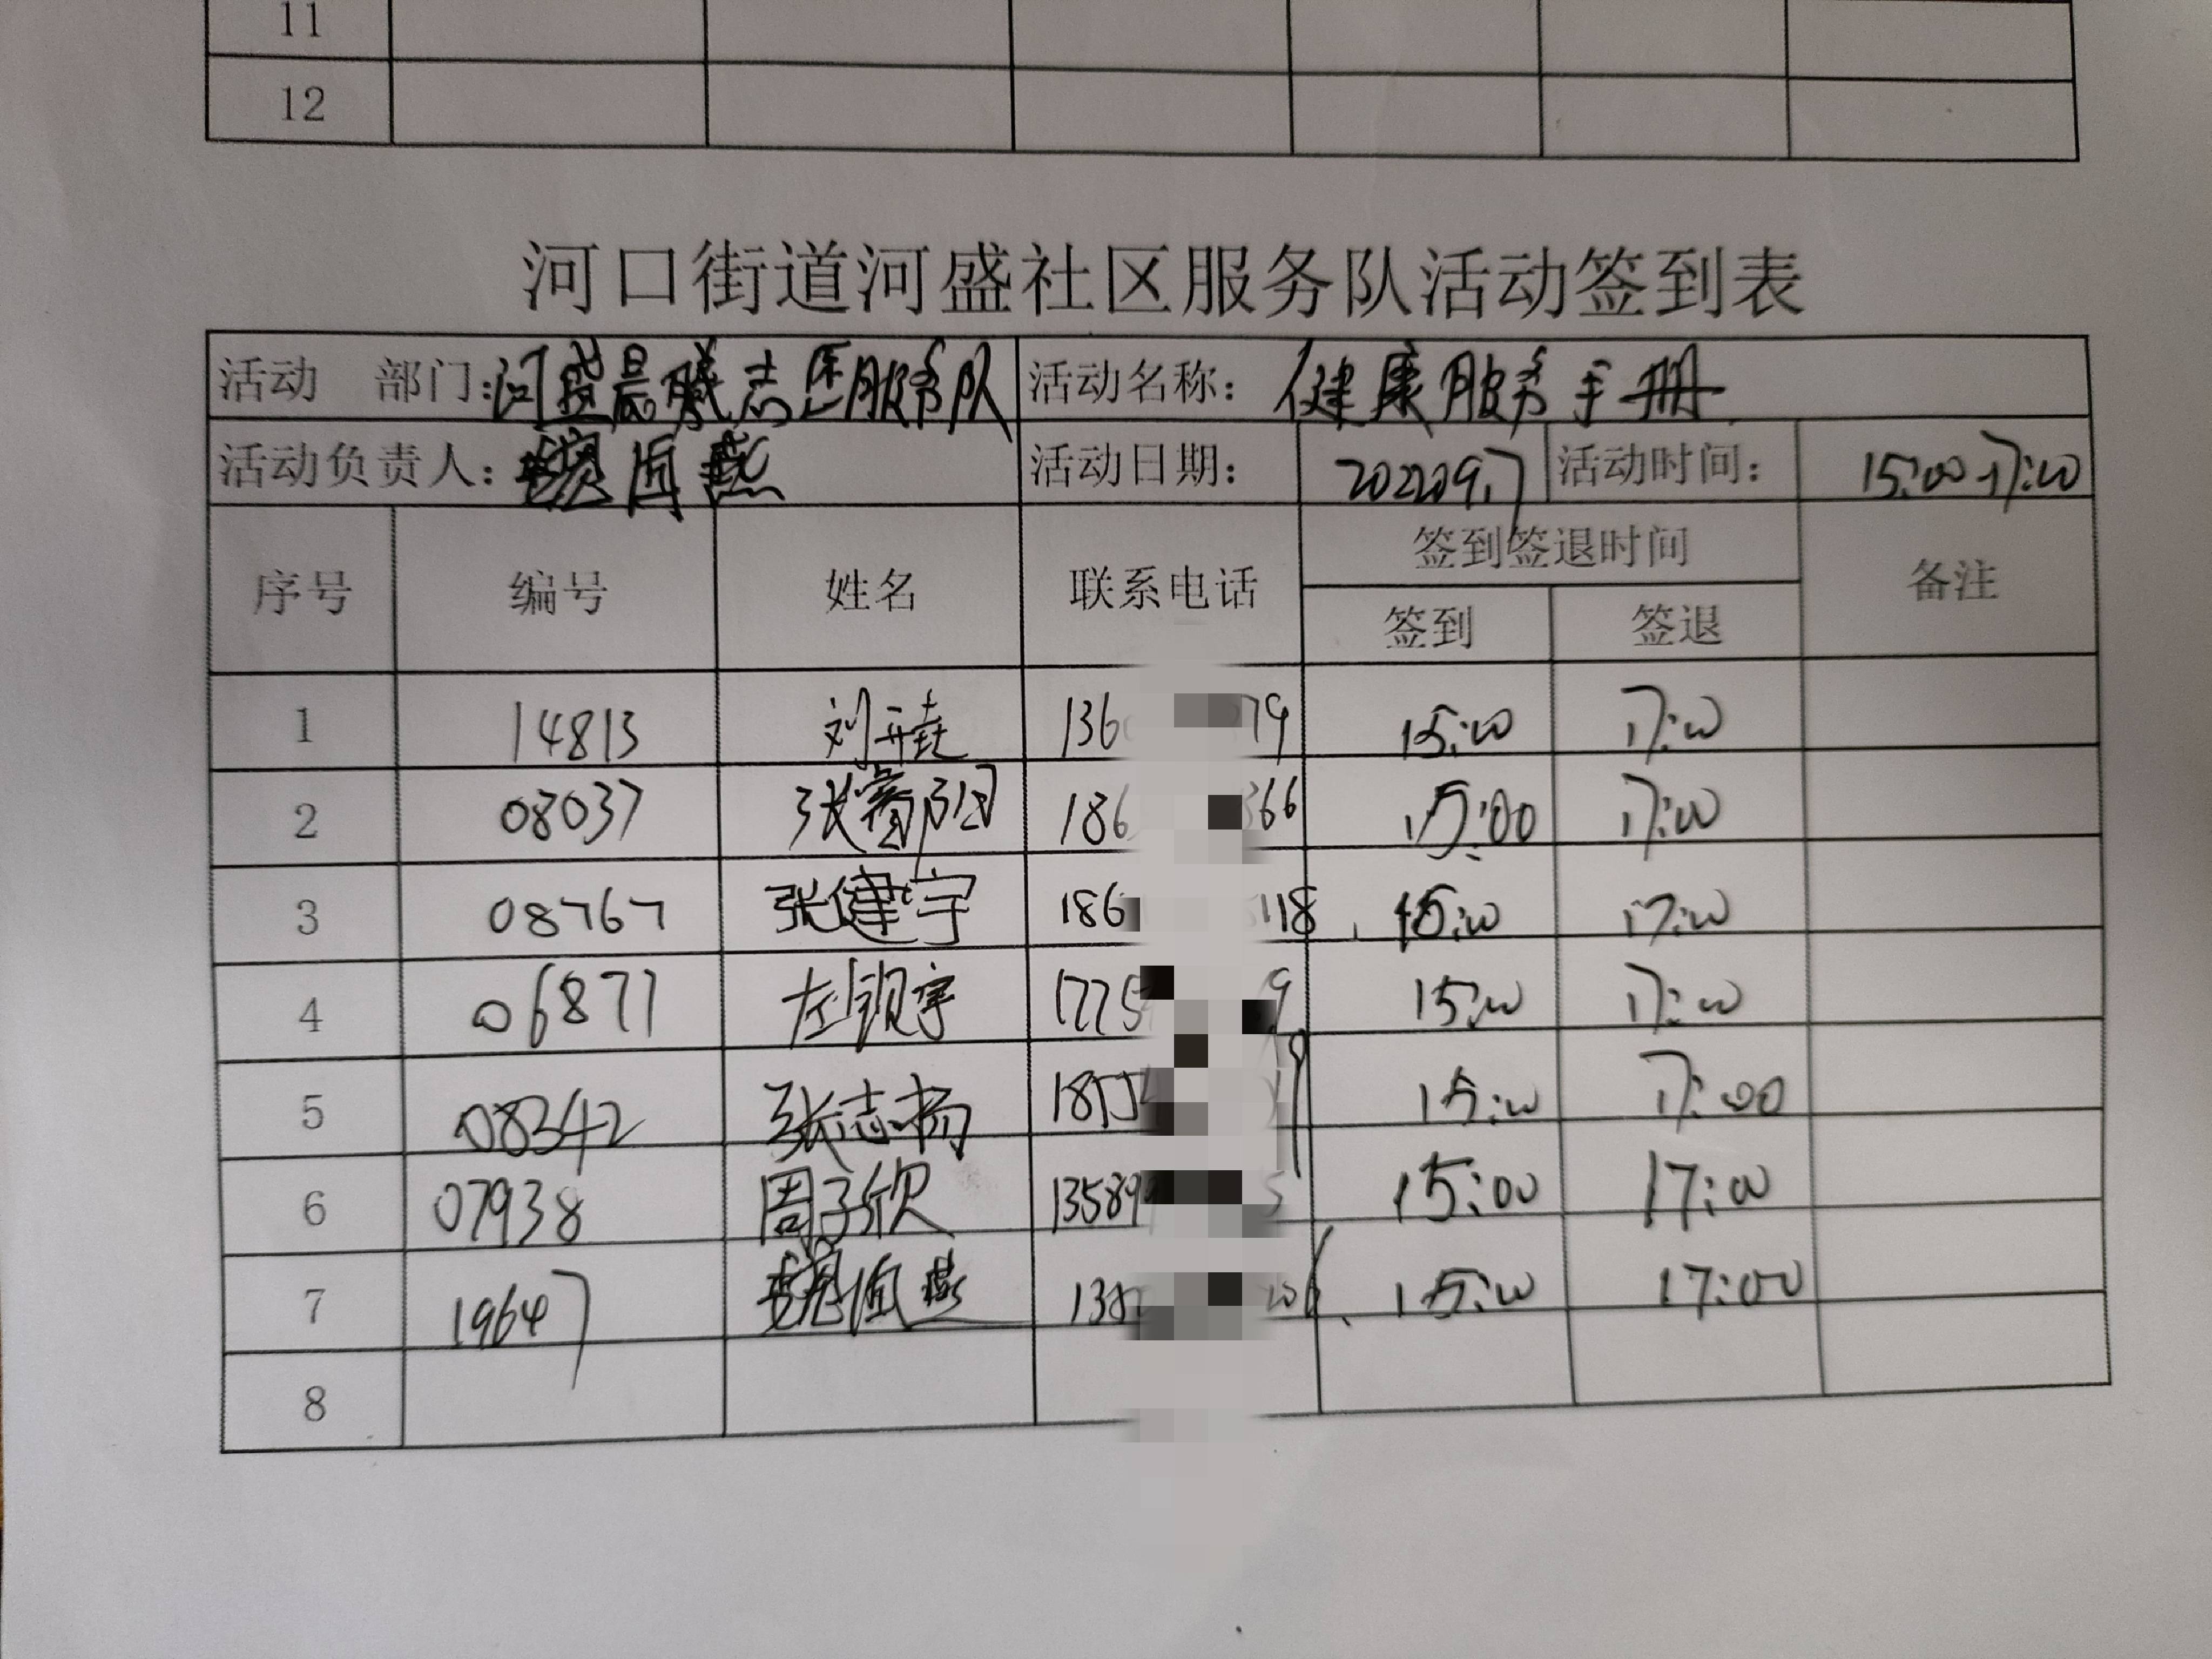 11
12
河口街道河盛社区服务队活动签到表
活动 部门:河盛晨曦志愿服务队 活动名称: 健康服务手册
活动负责人: 活动日期: 202209.7 活动时间: 15:00-17:00
序号 编号 姓名 联系电话 签到签退时间 备注
签到 签退
1 14813 136 79 15:00 17:00
2 08037 186 366 15:00 17:00
3 08767 张健宇 186 118 15:00 17:00
4 06871 1775 9 15:00 17:00
5 08342 张志杨 15:00 17:00
6 07938 周子欣 13589 5 15:00 17:00
7 19647 15:00 17:00
8